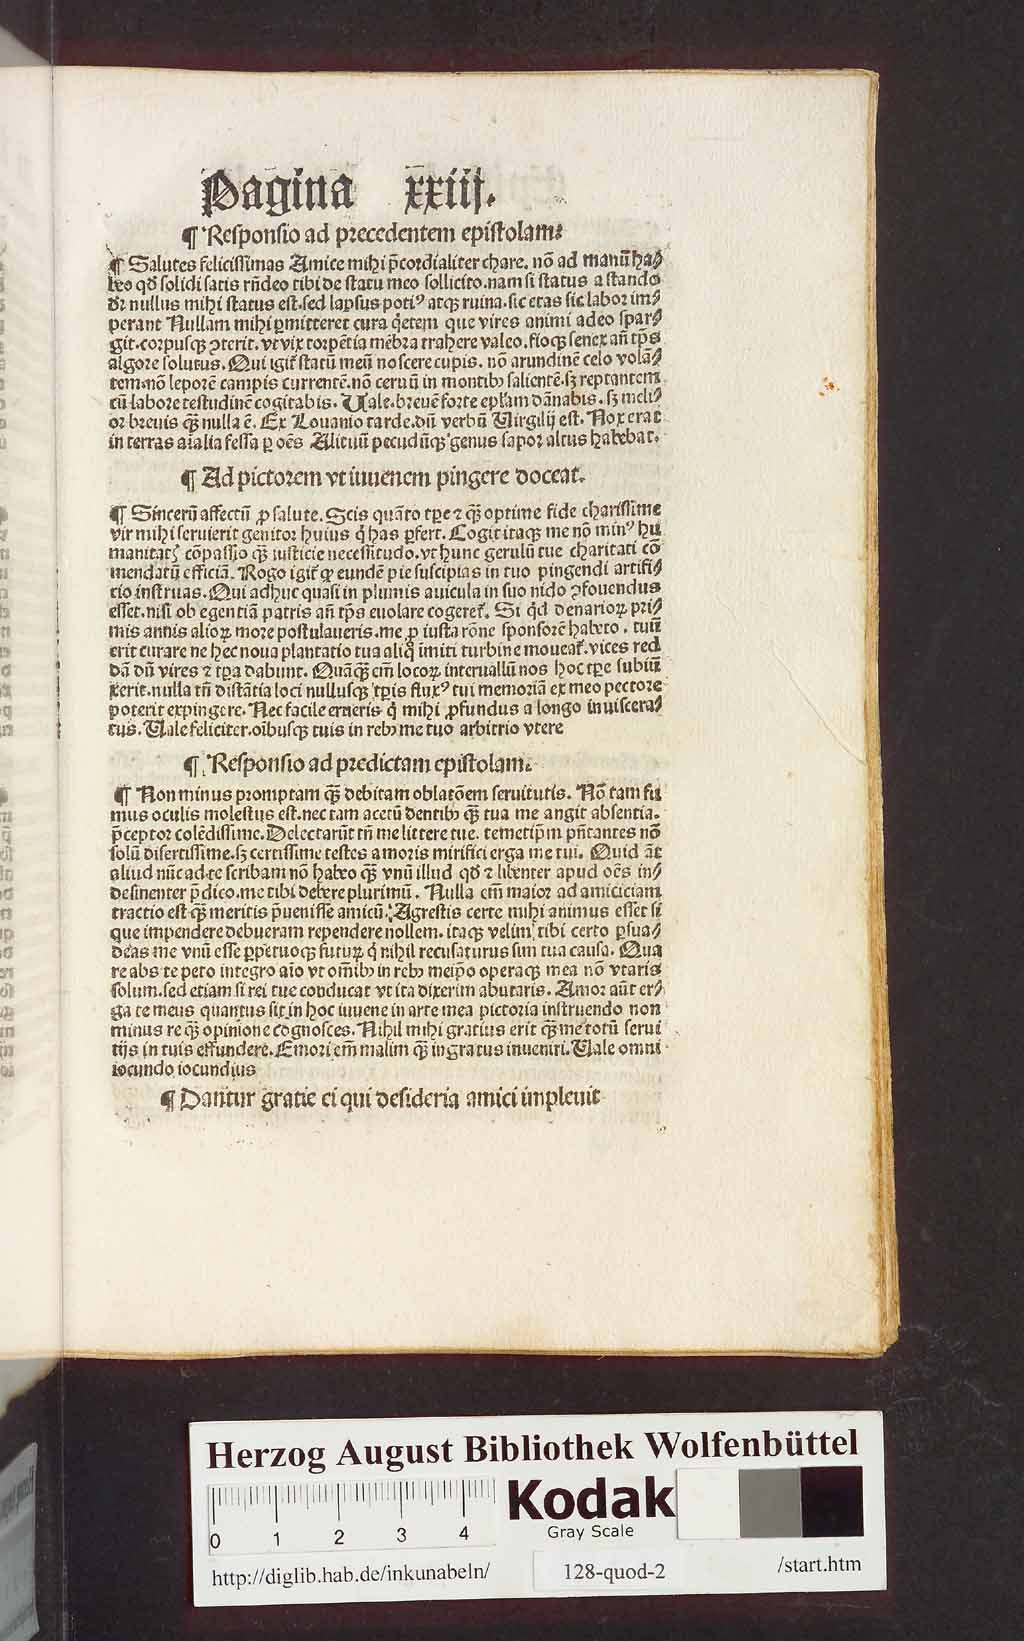 Pagina xxiij.
¶ Responsio ad precedentem epistolam:
¶ Salutes felicissimas Amice mihi p̄cordialiter chare. nō ad manū ha⸗
beo qđ solidi satis rn̄deo tibi de statu meo sollicito. nam si status a stando
dr̄ nullus mihi status est. sed lapsus potiꝰ atqꝫ ruina. sic etas sic labor im⸗
perant Nullam mihi ꝑmitteret cura q̇etem que vires animi adeo spar⸗
git. corpusqꝫ ꝯterit. vt vix torpētia mēbra trahere valeo. fioqꝫ senex añ tp̄s
algore solutus. Qui igit̄ statū meū noscere cupis. nō arundinē celo volā⸗
tem. nō leporē campis currentē. nō ceruū in montibꝫ salientē. sꝫ reptantem
cū labore testudinē cogitabis. Uale. breuē forte epl̄am dānabis. sꝫ meli⸗
or breuis qꝫ̄ nulla ē. Ex Louanio tarde. dū verbū Uirgilij est. Nox erat
in terras aīalia fessa ꝑ oēs Alituū pecudūqꝫ genus sapor altus habebat.
¶ Ad pictorem vt iuuenem pingere doceat.
¶ Sincerū affectū ꝓ salute. Scis quāto tꝑe ⁊ qꝫ̄ optime fide charissime
vir mihi seruierit genitor huius q̇ has ꝑfert. Cogit itaqꝫ me nō minꝰ hu
manitatꝭ cōpassio qꝫ̄ iusticie necessitudo. vt hunc gerulū tue charitati cō
mendatū efficiā. Rogo igit̄ ꝙ eundē pie suscipias in tuo pingendi artifi⸗
cio instruas. Qui adhuc quasi in plumis auicula in suo nido ꝯfouendus
esset. nisi ob egentiā patris añ tp̄s euolare cogeret̄. Si q̇d denarioꝝ pri⸗
mis annis alioꝝ more postulaueris. me ꝓ iusta rōne sponsorē habeto. tuū
erit curare ne hec noua plantatio tua aliq̇ īmiti turbine moueat̄. vices red
dā dū vires ⁊ tꝑa dabunt. Quāqꝫ̄ em̄ locoꝝ interuallū nos hoc tꝑe subiū
xerit. nulla tn̄ distātia loci nullusqꝫ tꝑis fluxꝰ tui memoriā ex meo pectore
poterit expingere. Nec facile erueris q̇ mihi ꝓfundus a longo inuiscera⸗
tus. Uale feliciter. oībusqꝫ tuis in rebꝫ me tuo arbitrio vtere
¶ Responsio ad predictam epistolam.
¶ Non minus promptam qꝫ̄ debitam oblatōem seruitutis. Nō tam fu
mus oculis molestus est. nec tam acetū dentibꝫ qꝫ̄ tua me angit absentia.
p̄ceptor colēdissime. Delectarūt tn̄ me littere tue. temetip̄m pn̄tantes nō
solū disertissime. sꝫ certissime testes amoris mirifici erga me tui. Quid āt
aliud nūc ad te scribam nō habeo qꝫ̄ vnū illud qđ ⁊ libenter apud oēs in⸗
desinenter p̄dico. me tibi debere plurimū. Nulla em̄ maior ad amiciciam
tractio est qꝫ̄ meritis p̄uenisse amicū. Agrestis certe mihi animus esset si
que impendere debueram rependere nollem. itaqꝫ velim tibi certo ꝑsua⸗
deas me vnū esse ꝑpetuoqꝫ futuꝝ q̇ nihil recusaturus sim tua causa. Qua
re abs te peto integro aīo vt om̄ibꝫ in rebꝫ meip̄o operaqꝫ mea nō vtaris
solum. sed etiam si rei tue conducat vt ita dixerim abutaris. Amor aūt er⸗
ga te meus quantus sit in hoc iuuene in arte mea pictoria instruendo non
minus re qꝫ̄ opinione cognosces. Nihil mihi gratius erit qꝫ̄ me totū serui
tijs in tuis effundere. Emori em̄ malim qꝫ̄ ingratus inueniri. Uale omni
iocundo iocundius
¶ Dantur gratie ei qui desideria amici impleuit
Herzog August Bibliothek Wolfenbüttel
Kodak
Gray Scale
0 1 2 3 4
http://diglib.hab.de/inkunabeln/ 128-quod-2 /start.htm